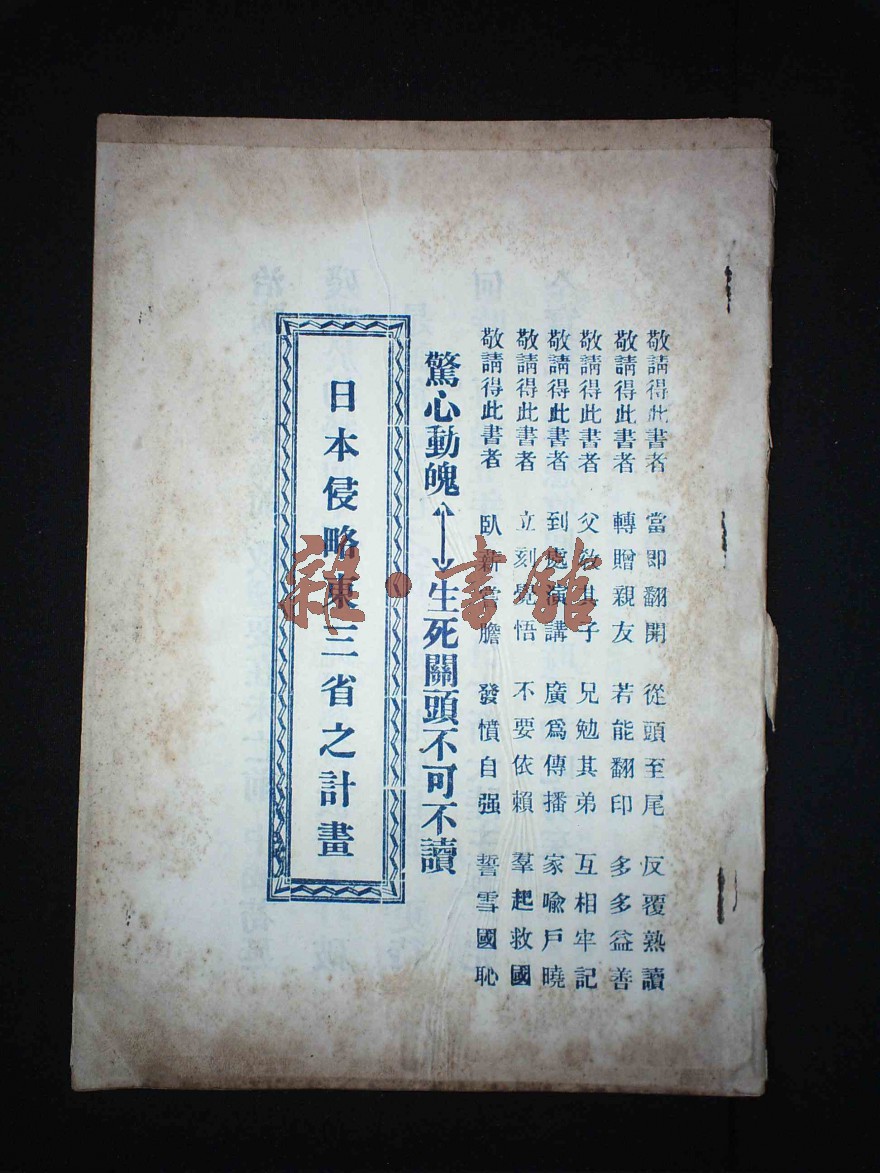 敬請得此書者 當即翻開 從頭至尾 反覆熟讀
敬請得此書者 轉贈親友 若能翻印 多多益善
敬請得此書者 父敎其子 兄勉其弟 互相牢記
敬請得此書者 到處演講 廣爲傳播 家喩戶曉
敬請得此書者 立刻覺悟 不要依賴 羣起救國
敬請得此書者 臥薪嘗膽 發憤自强 誓雪國恥
驚心動魄←→生死關頭不可不讀
日本侵略東三省之計畫
雜·書館